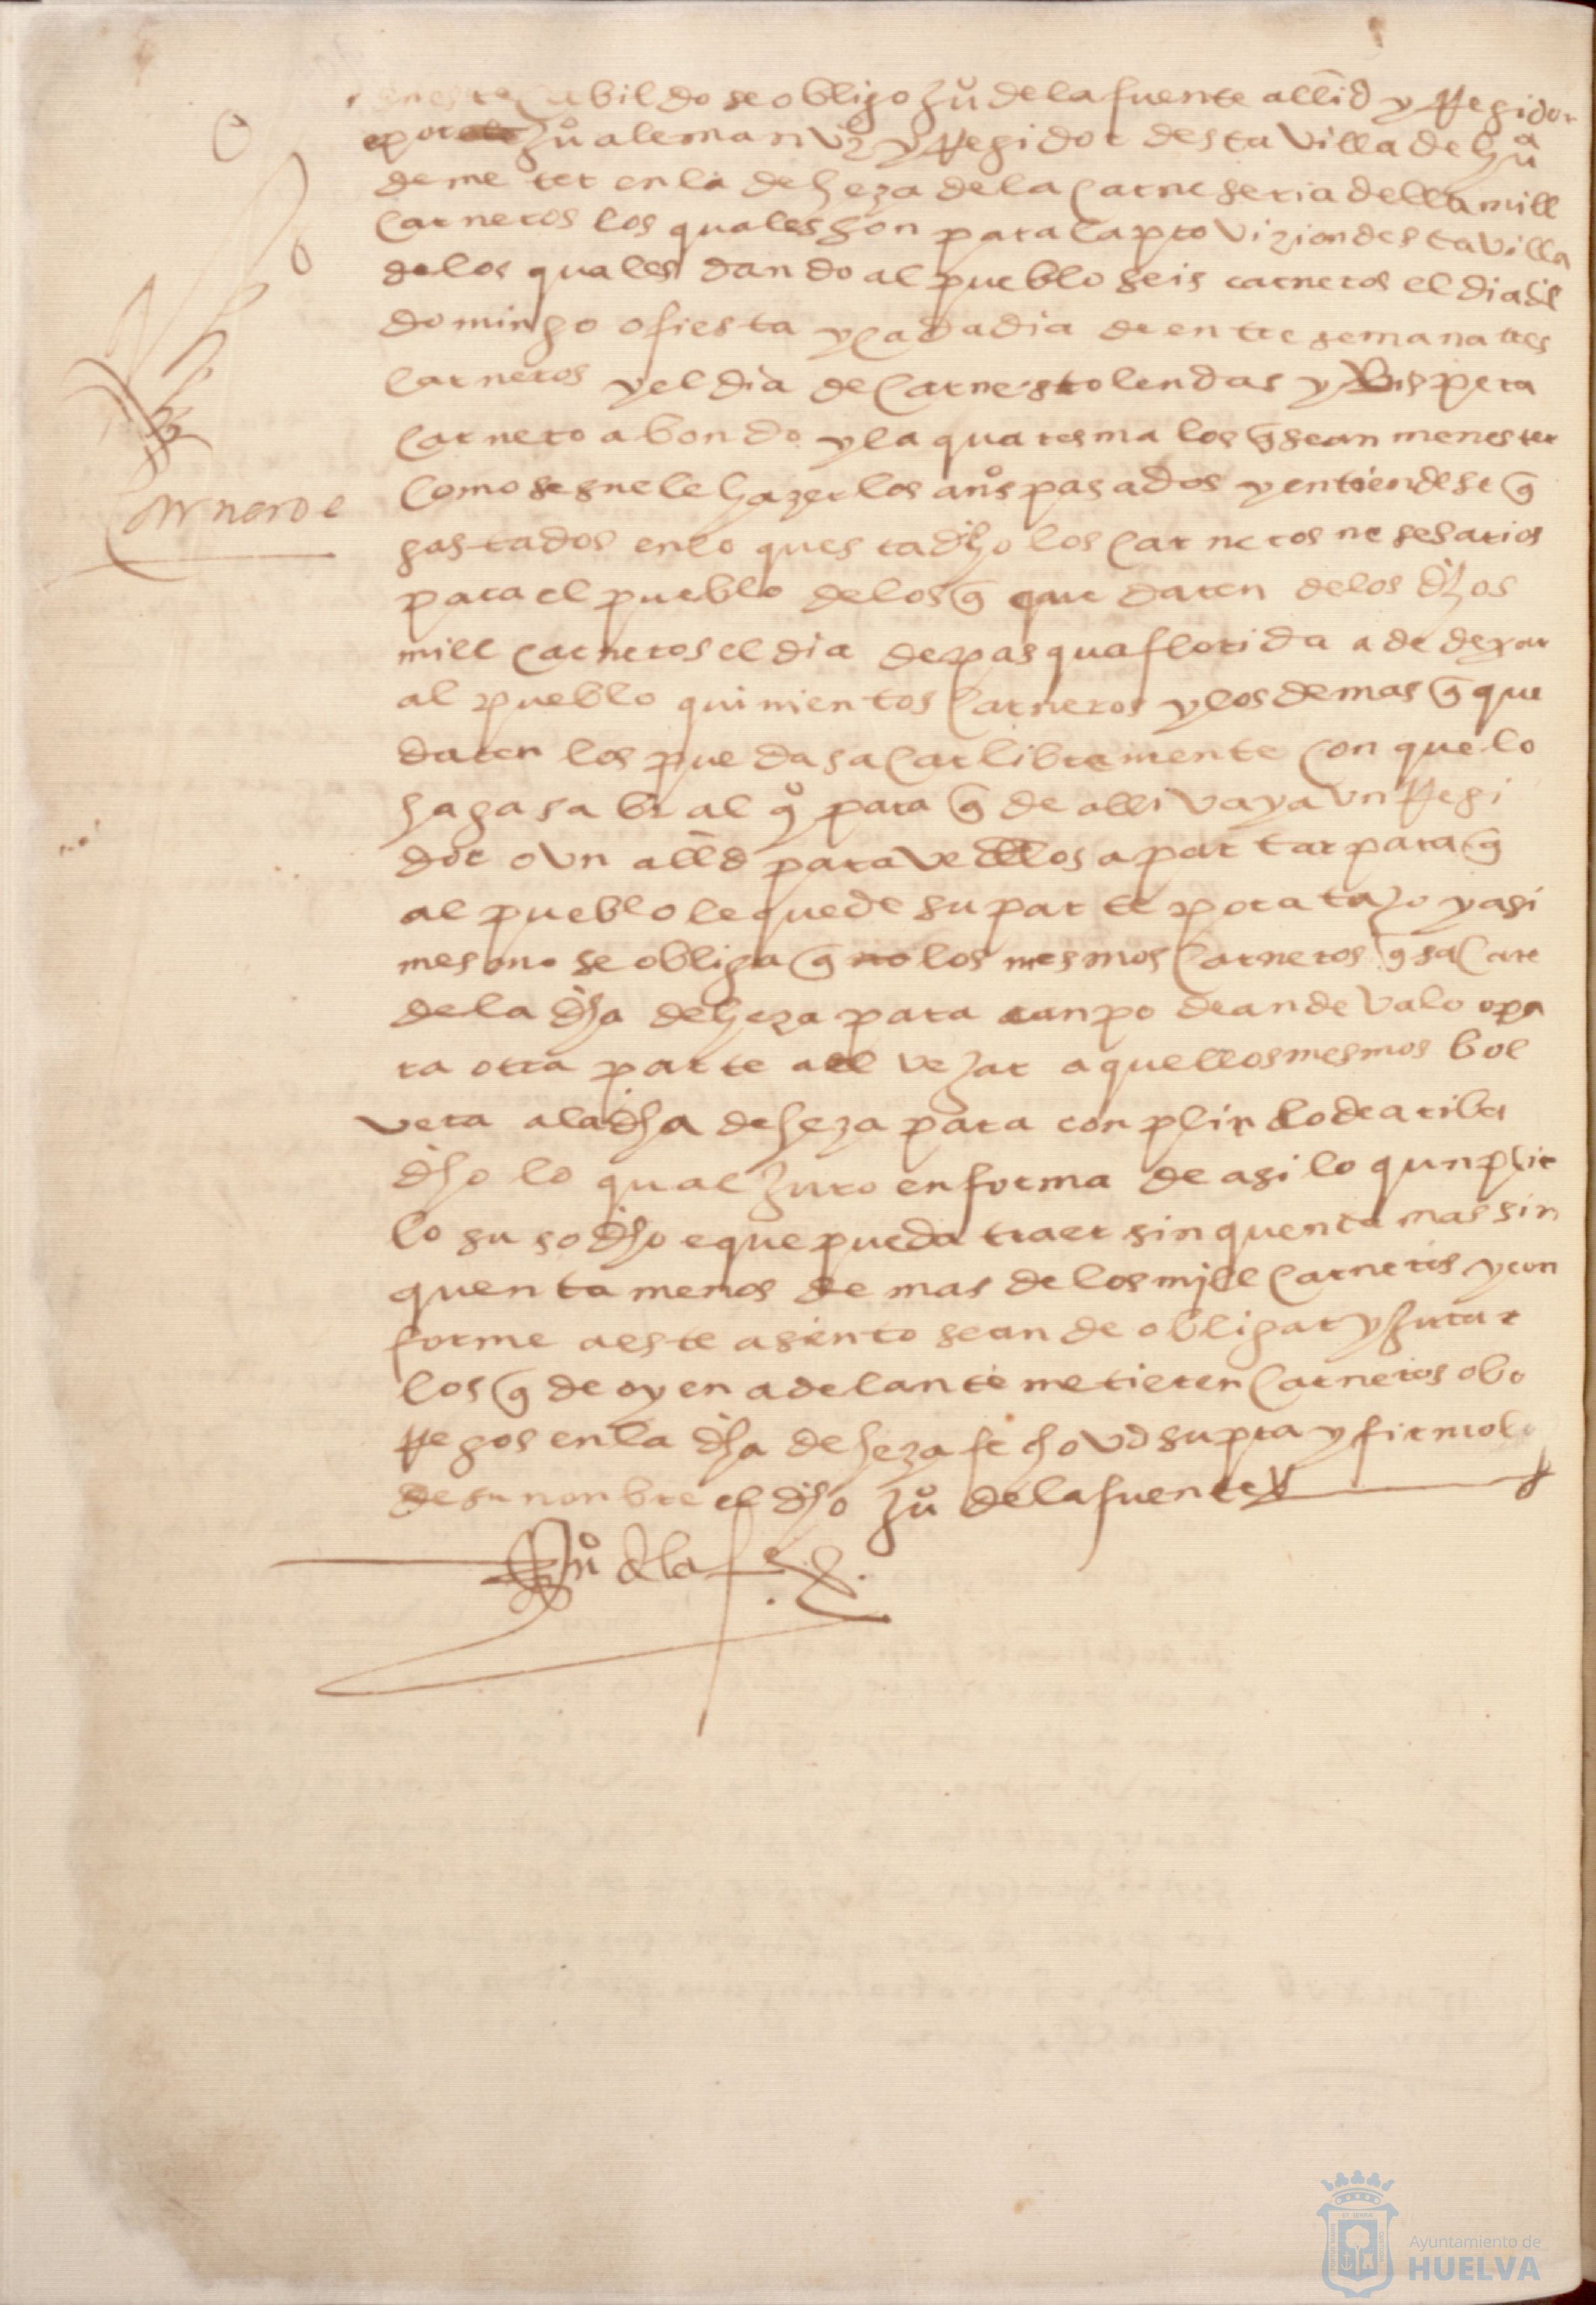 en este cabildo se obligo Juº de la fuente alld y Regidor
e por Juº aleman vzº y Regidor desta villa de huª
de meter en la deheza de la carneseria della mill
carneros los quales son para la provizion desta villa
de los quales dando al pueblo seis carneros el dia del
domingo o fiesta y cada dia de entre semana tres
carneros y el dia de carnestolendas y Bispera
carnero abondo y la quaresma los q sean menester
Carneros
como se suele hazer los anºs pasados y entiendese q
gastados en lo questa dho los carneros nesesarios
para el pueblo de los q quedaren de los dhos
mill carneros el dia de pasqua florida a de dexar
al pueblo quinientos carneros y los demas q que
daren los pueda sacar libremente con que lo
haga saber al qº para q de alli vaya un Regi
dor o vn alld para vellos apartar para q
al pueblo le quede su parte por atajo y asi
mesmo se obliga q los mesmos carneros q sacare
de la dha deheza para canpo de andevalo o pa
ra otra parte al vezar aquellos mesmos bol
vera a la dha deheza para conplir lo de ariba
dho lo qual Juro en forma de asi lo qunplir
lo suso dho e que pueda traer sinquenta mas sin
quenta menos de mas de los mill carneros y con
forme a este asiento sean de obligar y Jurar
los q de oy en adelante metieren carneros o bo
Regos en la dha deheza fecho vd supra y firmolo
de su nonbre el dho Juº de la fuente
Juº dla fe
Ayuntamiento de
HUELVA